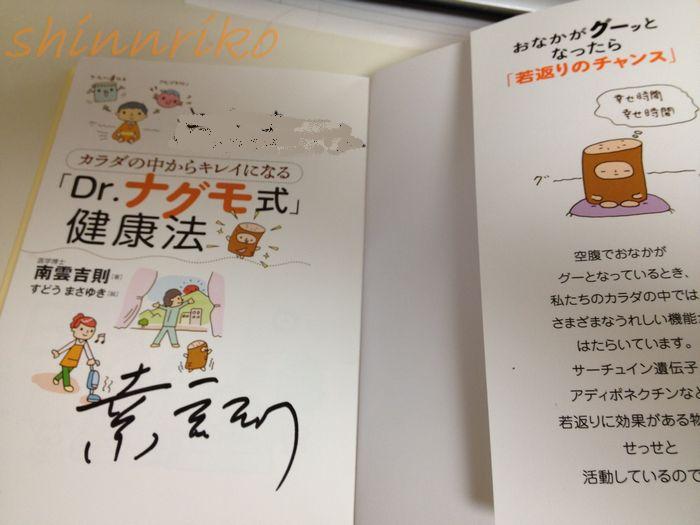 shinnriko
カラダの中からキレイになる
「Dr.ナグモ式」
健康法
医学博士
南雲吉則[著]
すどう まさゆき[絵]
おなかがグーッと
なったら
「若返りのチャンス」
幸せ時間
幸せ時間
グー
空腹でおなかが
グーとなっているとき、
私たちのカラダの中では
さまざまなうれしい機能が
はたらいています。
サーチュイン遺伝子
アディポネクチンなど
若返りに効果がある物
せっせと
活動しているので